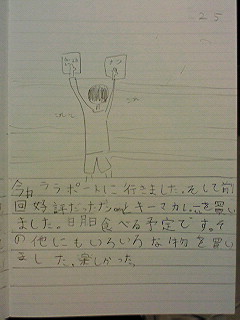 25
ナン
今日ララポートに行きました。そして前
回好評だったナンとキーマカレーを買い
ました。食べる予定です。そ
の他にもいろいろな物を買い
ました。楽しかった